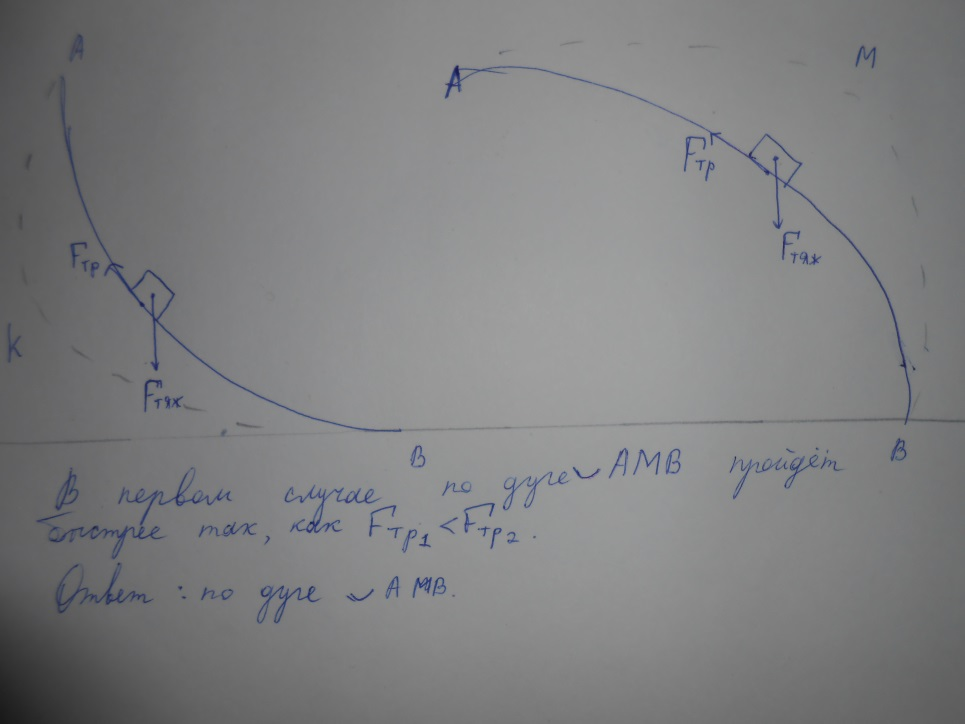 A
M
A
Fтр
Fтяж
Fтр
K
Fтяж
B
B
В первом случае по дуге ◡ АМВ пройдёт
быстрее так, как Fтр₁ < Fтр₂.
Ответ: по дуге ◡ АМВ.